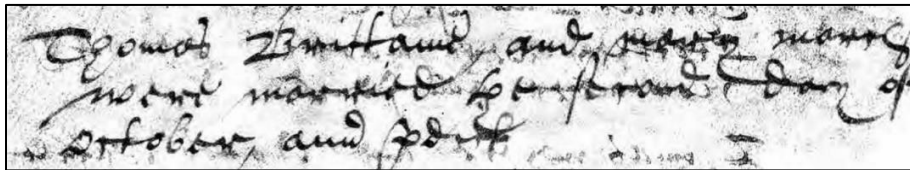 Thomas Brittaine and mary
were married the second day of
October, and